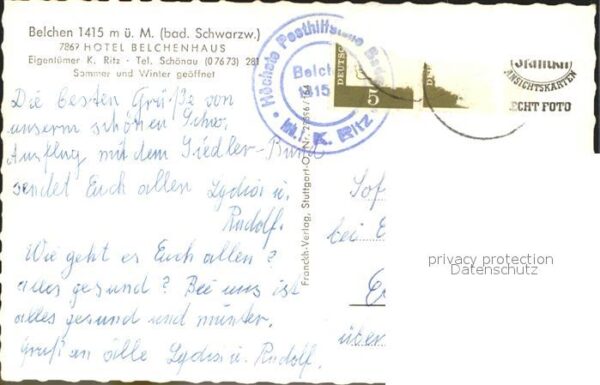 Belchen 1415 m ü. M. (bad. Schwarzw.)
7869 HOTEL BELCHENHAUS
Eigentümer K. Ritz - Tel. Schönau (07673) 281
Sommer und Winter geöffnet
Die besten Grüße von
unserm schönen
Ausflug mit dem Siedler-Bund
sendet Euch allen Lydia u.
Rudolf.
Wie geht es Euch allen?
alles gesund? Bei uns ist
alles gesund und munter.
Gruß an alle Lydia u. Rudolf.
Höchste Posthilfstelle
Belchen
1415
K. Ritz
DEUTSCHE
5
ANSICHTSKARTEN
ECHT FOTO
Franckh-Verlag, Stuttgart-O
Sof
bei E
über
privacy protection
Datenschutz